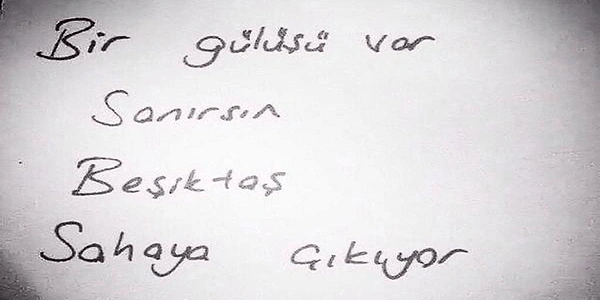 Bir gülüşü var
Sanırsın
Beşiktaş
Sahaya çıkıyor